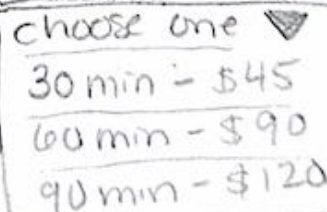 choose one
30 min - $45
60 min - $90
90 min - $120